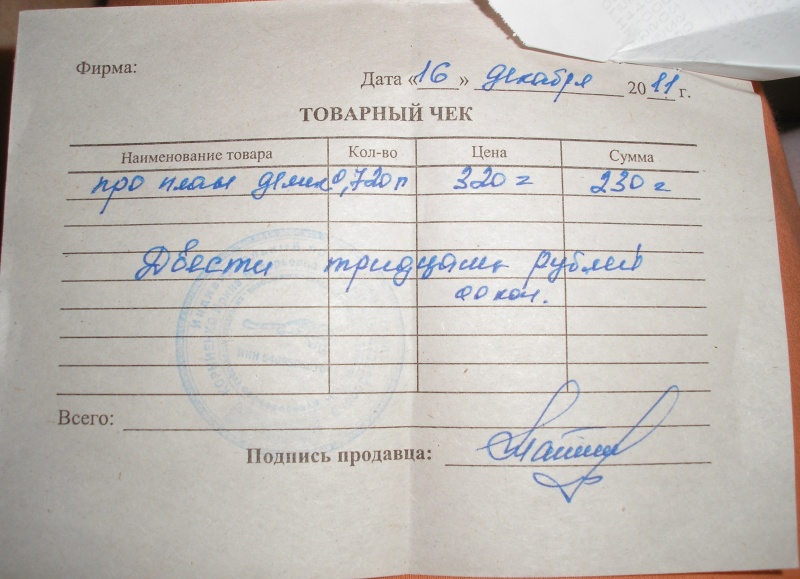 Фирма:
Дата «16» декабря 2011 г.
ТОВАРНЫЙ ЧЕК
Наименование товара Кол-во Цена Сумма
про план делик 0,720 320 230
Двести тридцать рублей
00 коп.
Всего:
Подпись продавца: